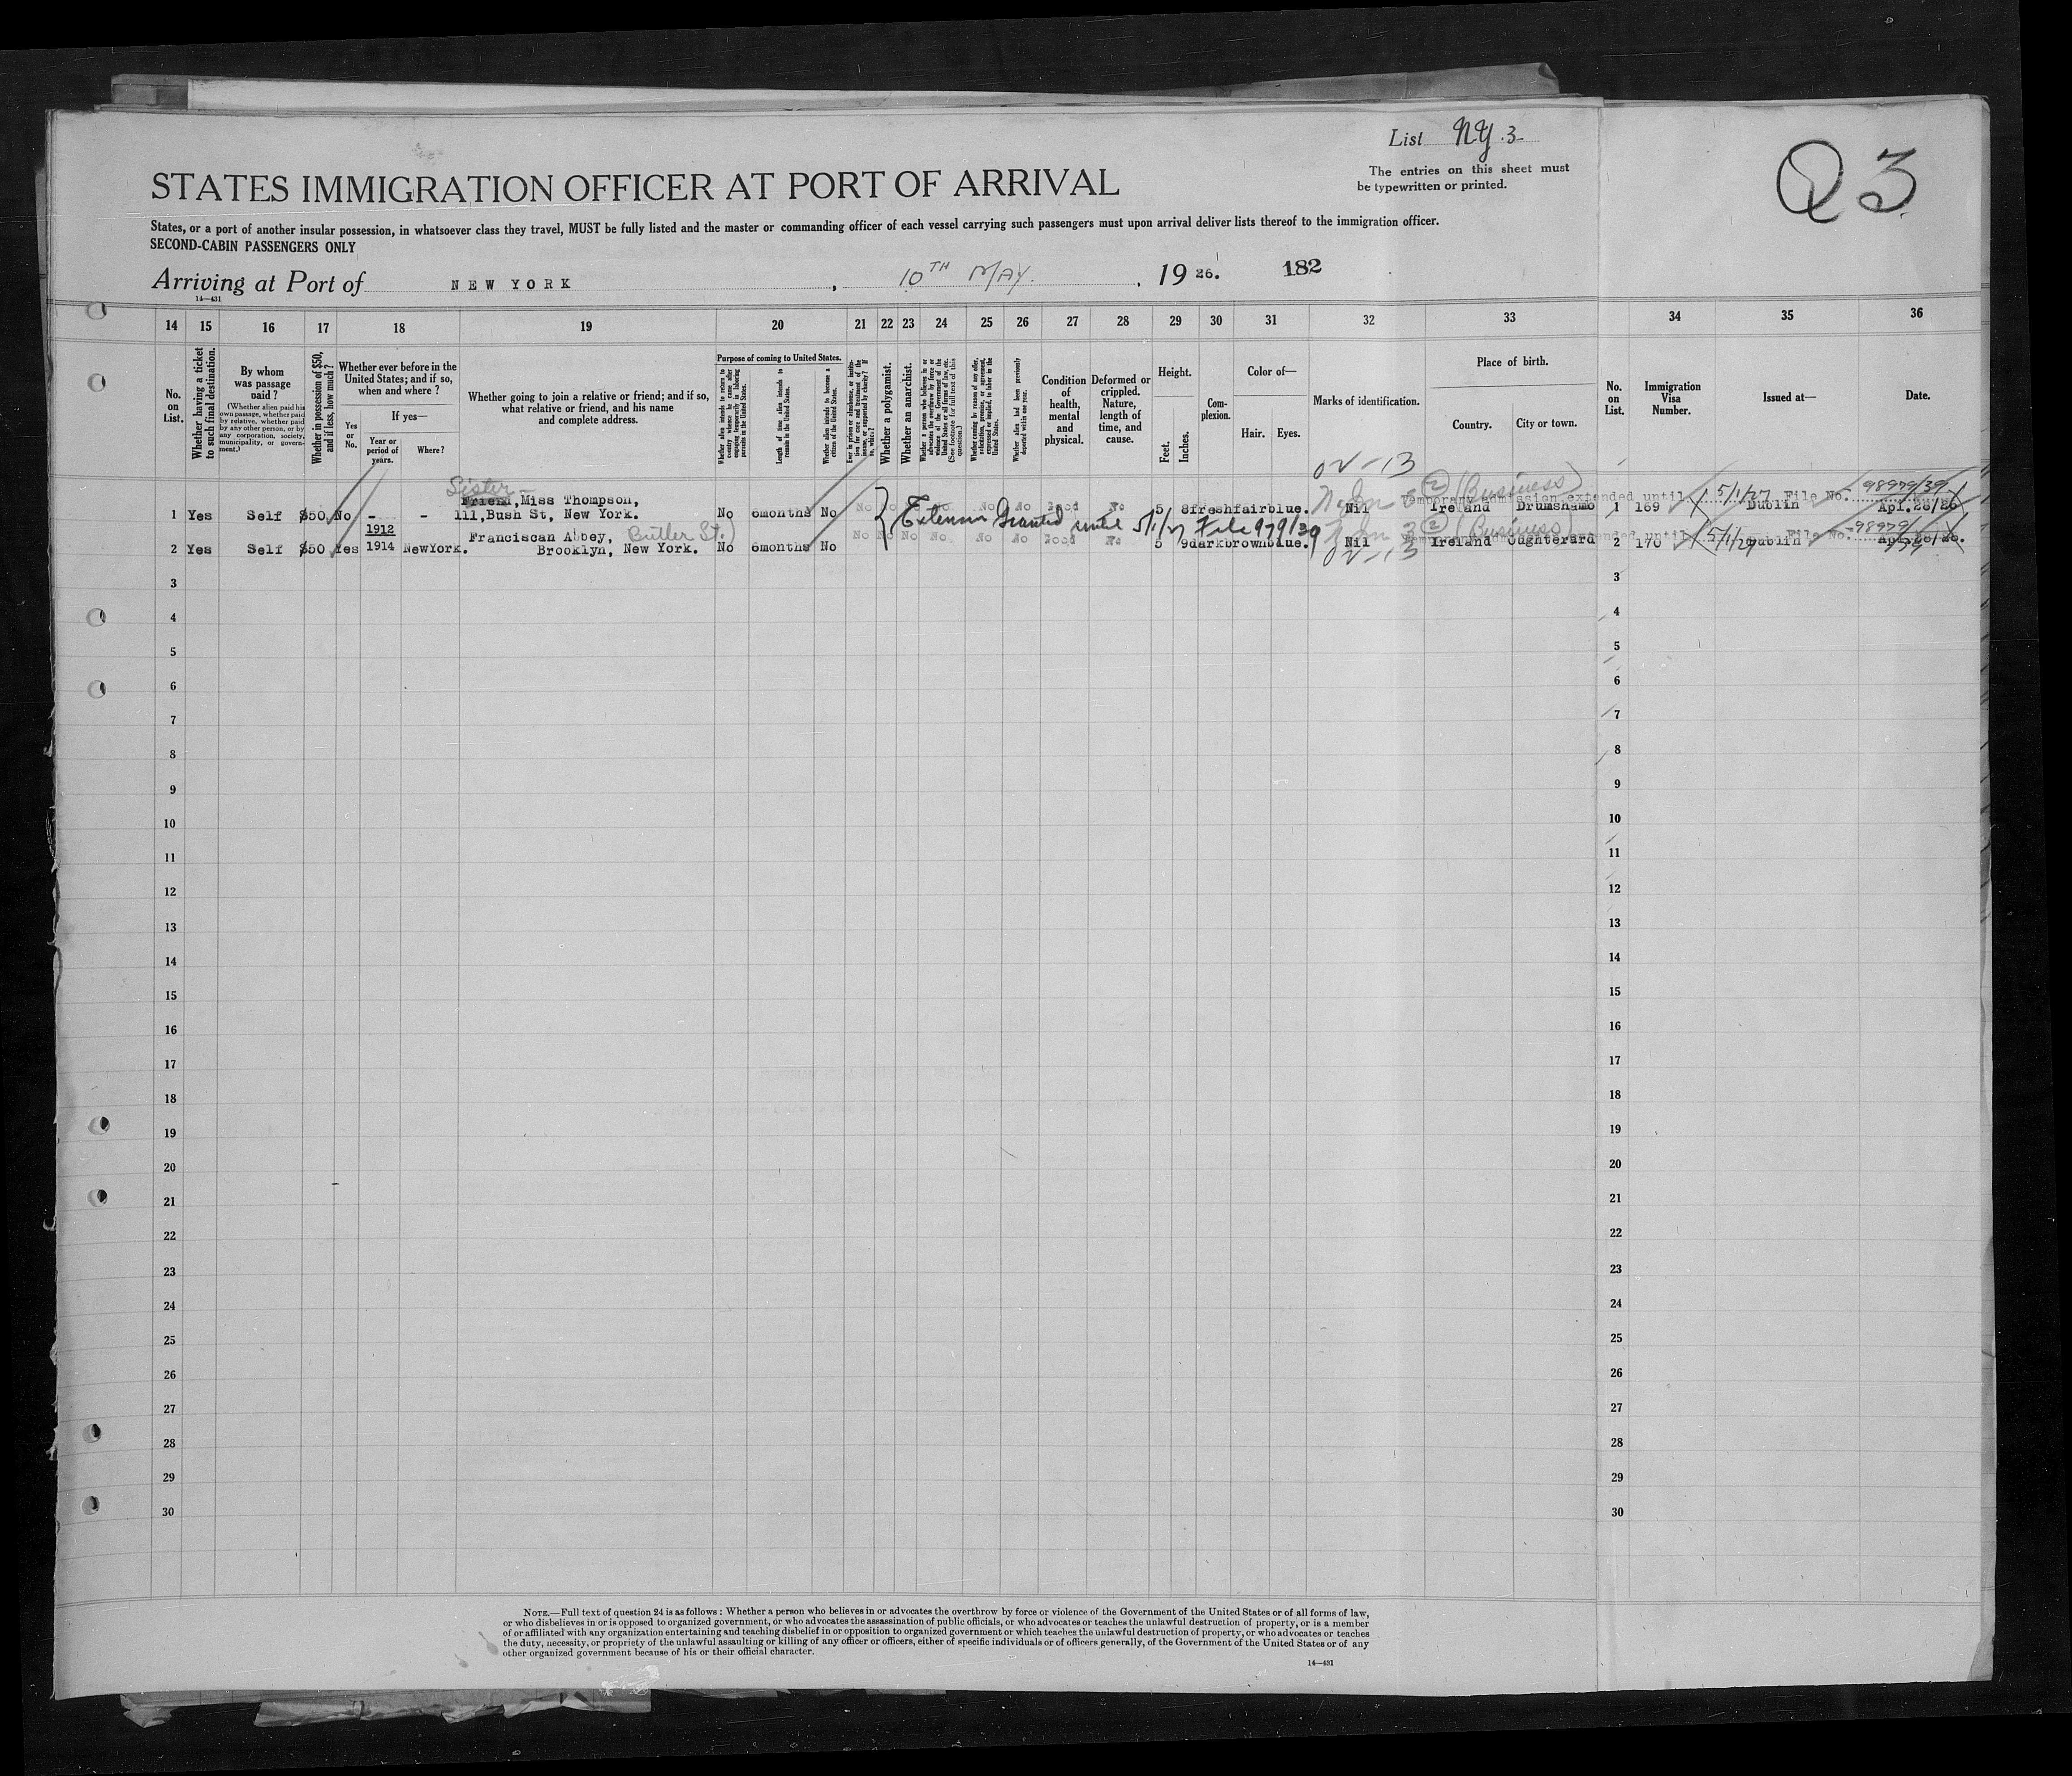 List NY 3
Q3
The entries on this sheet must
be typewritten or printed.
STATES IMMIGRATION OFFICER AT PORT OF ARRIVAL
States, or a port of another insular possession, in whatsoever class they travel, MUST be fully listed and the master or commanding officer of each vessel carrying such passengers must upon arrival deliver lists thereof to the immigration officer.
SECOND-CABIN PASSENGERS ONLY
Arriving at Port of NEW YORK, 10TH MAY, 1926. 182
14—431
14 15 16 17 18 19 20 21 22 23 24 25 26 27 28 29 30 31 32 33 34 35 36
No. on List.
Whether having a ticket to such final destination.
By whom was passage paid?
(Whether alien paid his own passage, whether paid by relative, whether paid by any other person, or by any corporation, society, municipality, or government.)
Whether in possession of $50, and if less, how much?
Whether ever before in the United States; and if so, when and where?
Yes or No.
If yes—
Year or period of years.
Where?
Whether going to join a relative or friend; and if so, what relative or friend, and his name and complete address.
Purpose of coming to United States.
Whether alien intends to return to country whence he came after engaging temporarily in laboring pursuits in the United States.
Length of time alien intends to remain in the United States.
Whether alien intends to become a citizen of the United States.
Ever in prison or almshouse, or institution for care and treatment of the insane, or supported by charity? If so, which?
Whether a polygamist.
Whether an anarchist.
Whether a person who believes in or advocates the overthrow by force or violence of the Government of the United States or all forms of law, etc. (See footnote for full text of this question.)
Whether coming by reason of any offer, solicitation, promise, or agreement, expressed or implied, to labor in the United States.
Whether alien had been previously deported within one year.
Condition of health, mental and physical.
Deformed or crippled. Nature, length of time, and cause.
Height.
Feet.
Inches.
Complexion.
Color of—
Hair.
Eyes.
Marks of identification.
Place of birth.
Country.
City or town.
No. on List.
Immigration Visa Number.
Issued at—
Date.
Sister
Friend, Miss Thompson, No No No No No No Good No Temporary admission extended until 5/1/27 File No. 98979/39
1 Yes Self $50 No - - 111, Bush St, New York. No 6months No 5 8 fresh fair blue. Nil Ireland Drumshambo 1 169 Dublin Apl.28/26
(Business)
Extension Granted until 5/1/27 File 979/39
1912 Franciscan Abbey, Butler St.) No No No No No No Good No
2 Yes Self $50 Yes 1914 NewYork. Brooklyn, New York. No 6months No 5 9 dark brown blue. Nil Ireland Oughterard 2 170 Dublin Apl.28/26.
(Business) 5/1/27 File No. 98979/39
3 3
4 4
5 5
6 6
7 7
8 8
9 9
10 10
11 11
12 12
13 13
14 14
15 15
16 16
17 17
18 18
19 19
20 20
21 21
22 22
23 23
24 24
25 25
26 26
27 27
28 28
29 29
30 30
NOTE.—Full text of question 24 is as follows: Whether a person who believes in or advocates the overthrow by force or violence of the Government of the United States or of all forms of law,
or who disbelieves in or is opposed to organized government, or who advocates the assassination of public officials, or who advocates or teaches the unlawful destruction of property, or is a member
of or affiliated with any organization entertaining and teaching disbelief in or opposition to organized government or which teaches the unlawful destruction of property, or who advocates or teaches
the duty, necessity, or propriety of the unlawful assaulting or killing of any officer or officers, either of specific individuals or of officers generally, of the Government of the United States or of any
other organized government because of his or their official character.
14—431